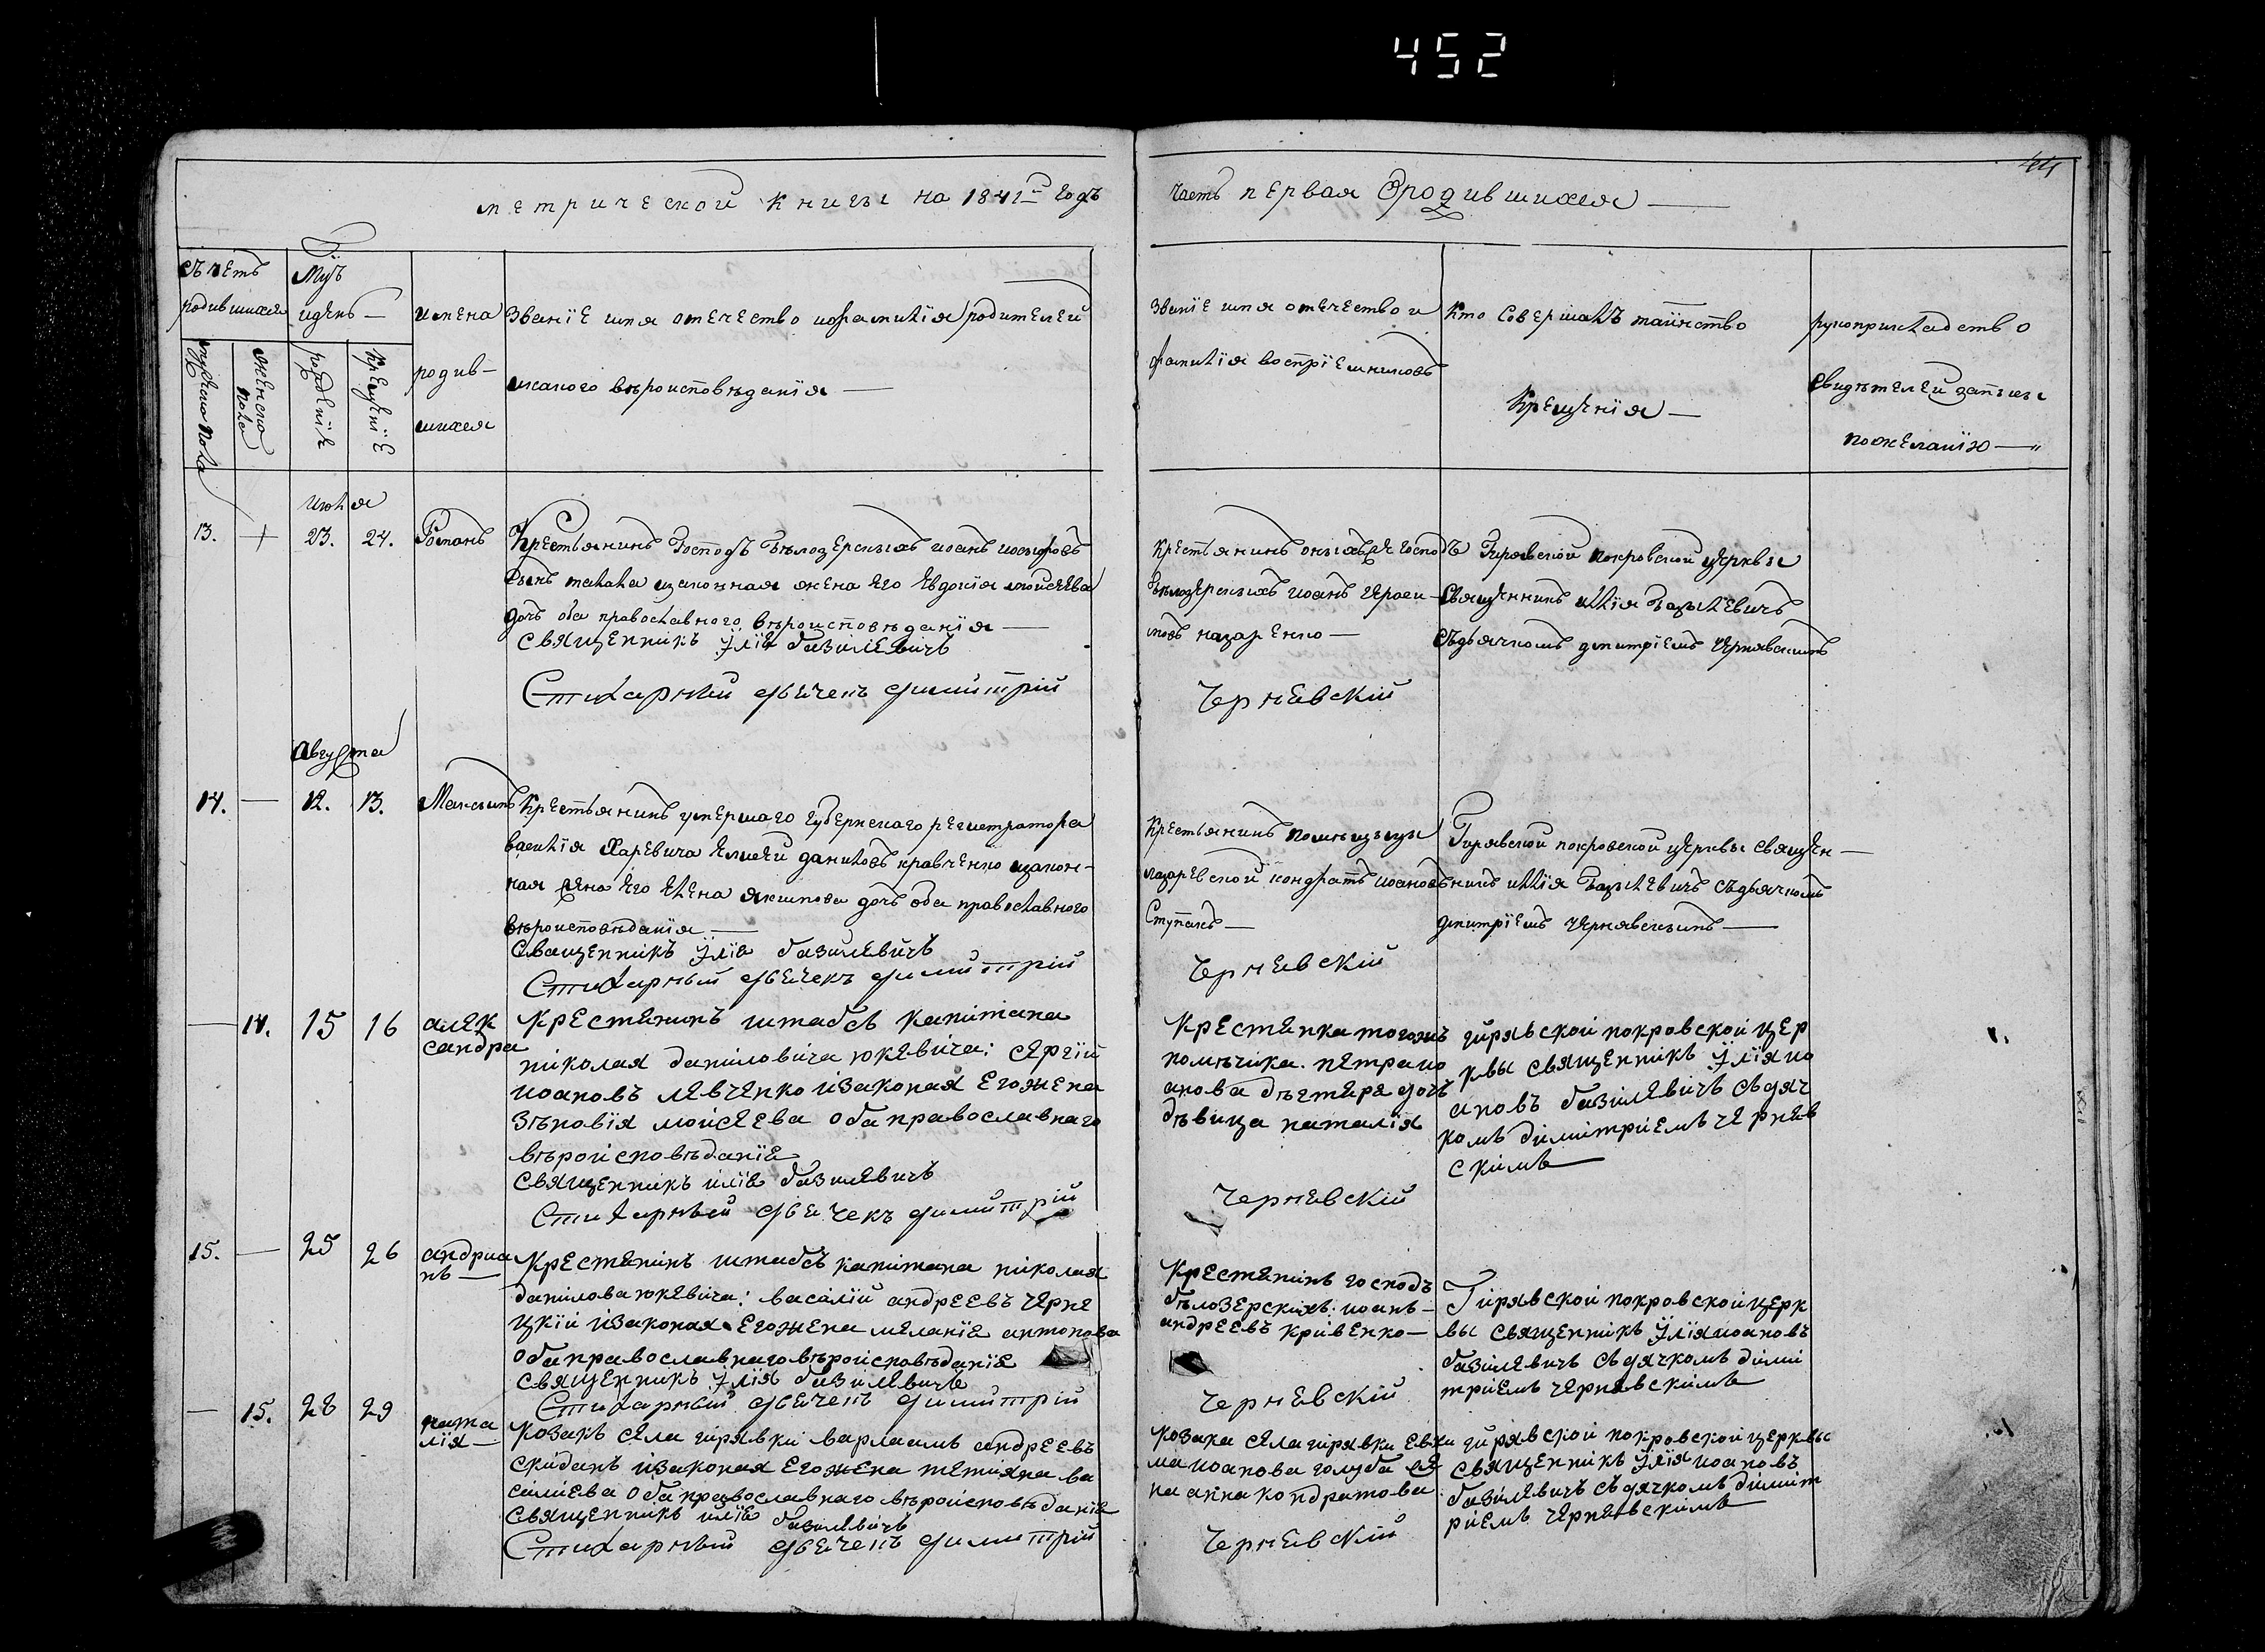 452
44
метрической книги на 1841й годъ
часть первая о родившихся
счетъ родившихся
мужеска пола
женска пола
мцъ и день
рожденїя
крещенїе
имена родив-
шихся
званїе имя отечество и фамилїя родителей
и какого вѣроисповѣданїя
званїе имя отечество и
фамилїя воспрїемниковъ
кто совершалъ таинство
крещенїя
рукоприкладство
свидѣтелей записы
по желанїю
июля
13.
23.
24.
Романъ
Крестьянинъ господъ бѣлозерскихъ иоанъ иосифовъ
законная жена его Евдокїя моисеева
дочь оба православного вѣроисповѣданїя
священникъ Їлїя базилевичъ
Стихарный дьячекъ димитрїй
Чернявскїй
крестьянинъ онихъ же господъ
бѣлозерскихъ иоанъ гераси-
мовъ назаренко
Гирявской покровской церквы
священникъ илїя базылевичъ
съ дьячкомъ дмитрїемъ чернявскимъ
августа
14.
12.
13.
Максимъ
крестьянинъ умершаго губернскаго регистратора
василїя Харевича Елисей даниловъ кравченко и закон-
ная жена его Елена якимова дочь оба православного
вѣроисповѣданїя
священникъ Їлїя базилевичъ
Стихарный дьячекъ димитрїй
Чернявскїй
крестьянинъ помѣщыцы
лазаревской кондратъ иоановъ
Ступакъ
Гирявской покровской церквы священ-
никъ илїя базылевичъ съ дьячкомъ
дмитрїемъ чернявскимъ
14.
15
16
алек
сандра
крестянинъ штабсъ капитана
николая даниловича юкевича: сергїй
иоановъ левченко и законая его жена
зѣновїя мойсеева оба православнаго
вѣроисповѣданїе
священникъ илїя базилевичъ
Стихарный дьячекъ димитрїй
Чернявскїй
крестянка тогожъ
помѣчика. петра ио
анова дегтяра дочъ
дѣвица наталїя
гирявской покровской цер
квы священникъ Їлїя ио
ановъ базилевичъ съ дяч
комъ димитриемъ черняв
скимъ
15.
25
26
андриа
нъ
крестянинъ штабсъ капитана николая
данилова юкевича: василїй андреевъ черне
цкїй и законая его жена меланїя антонова
оба православнаго вѣроисповѣданїе
священникъ Їлїя базилевичъ
Стихарный дьячекъ димитрїй
Чернявскїй
крестянинъ господъ
бѣлозерскихъ. иоанъ
андреевъ кривенко
Гирявской покровской церк
вы священникъ Їлїя иоановъ
базилевичъ съ дячкомъ дими
триемъ чернявскимъ
15.
28
29
ната
лїя
козакъ села гирявки варлаамъ андреевъ
скиданъ и законая его жена тетияна ва
силиева оба православнаго вѣроисповѣданїе
священникъ илїя базилевичъ
Стихарный дьячекъ димитрїй
Чернявскїй
козака села гирявки евхи
ма иоанова голуба же
на анна кондратова
гирявской покровской церквы
священникъ Їлїя иоановъ
базилевичъ съ дячкомъ димит
риемъ чернявскимъ